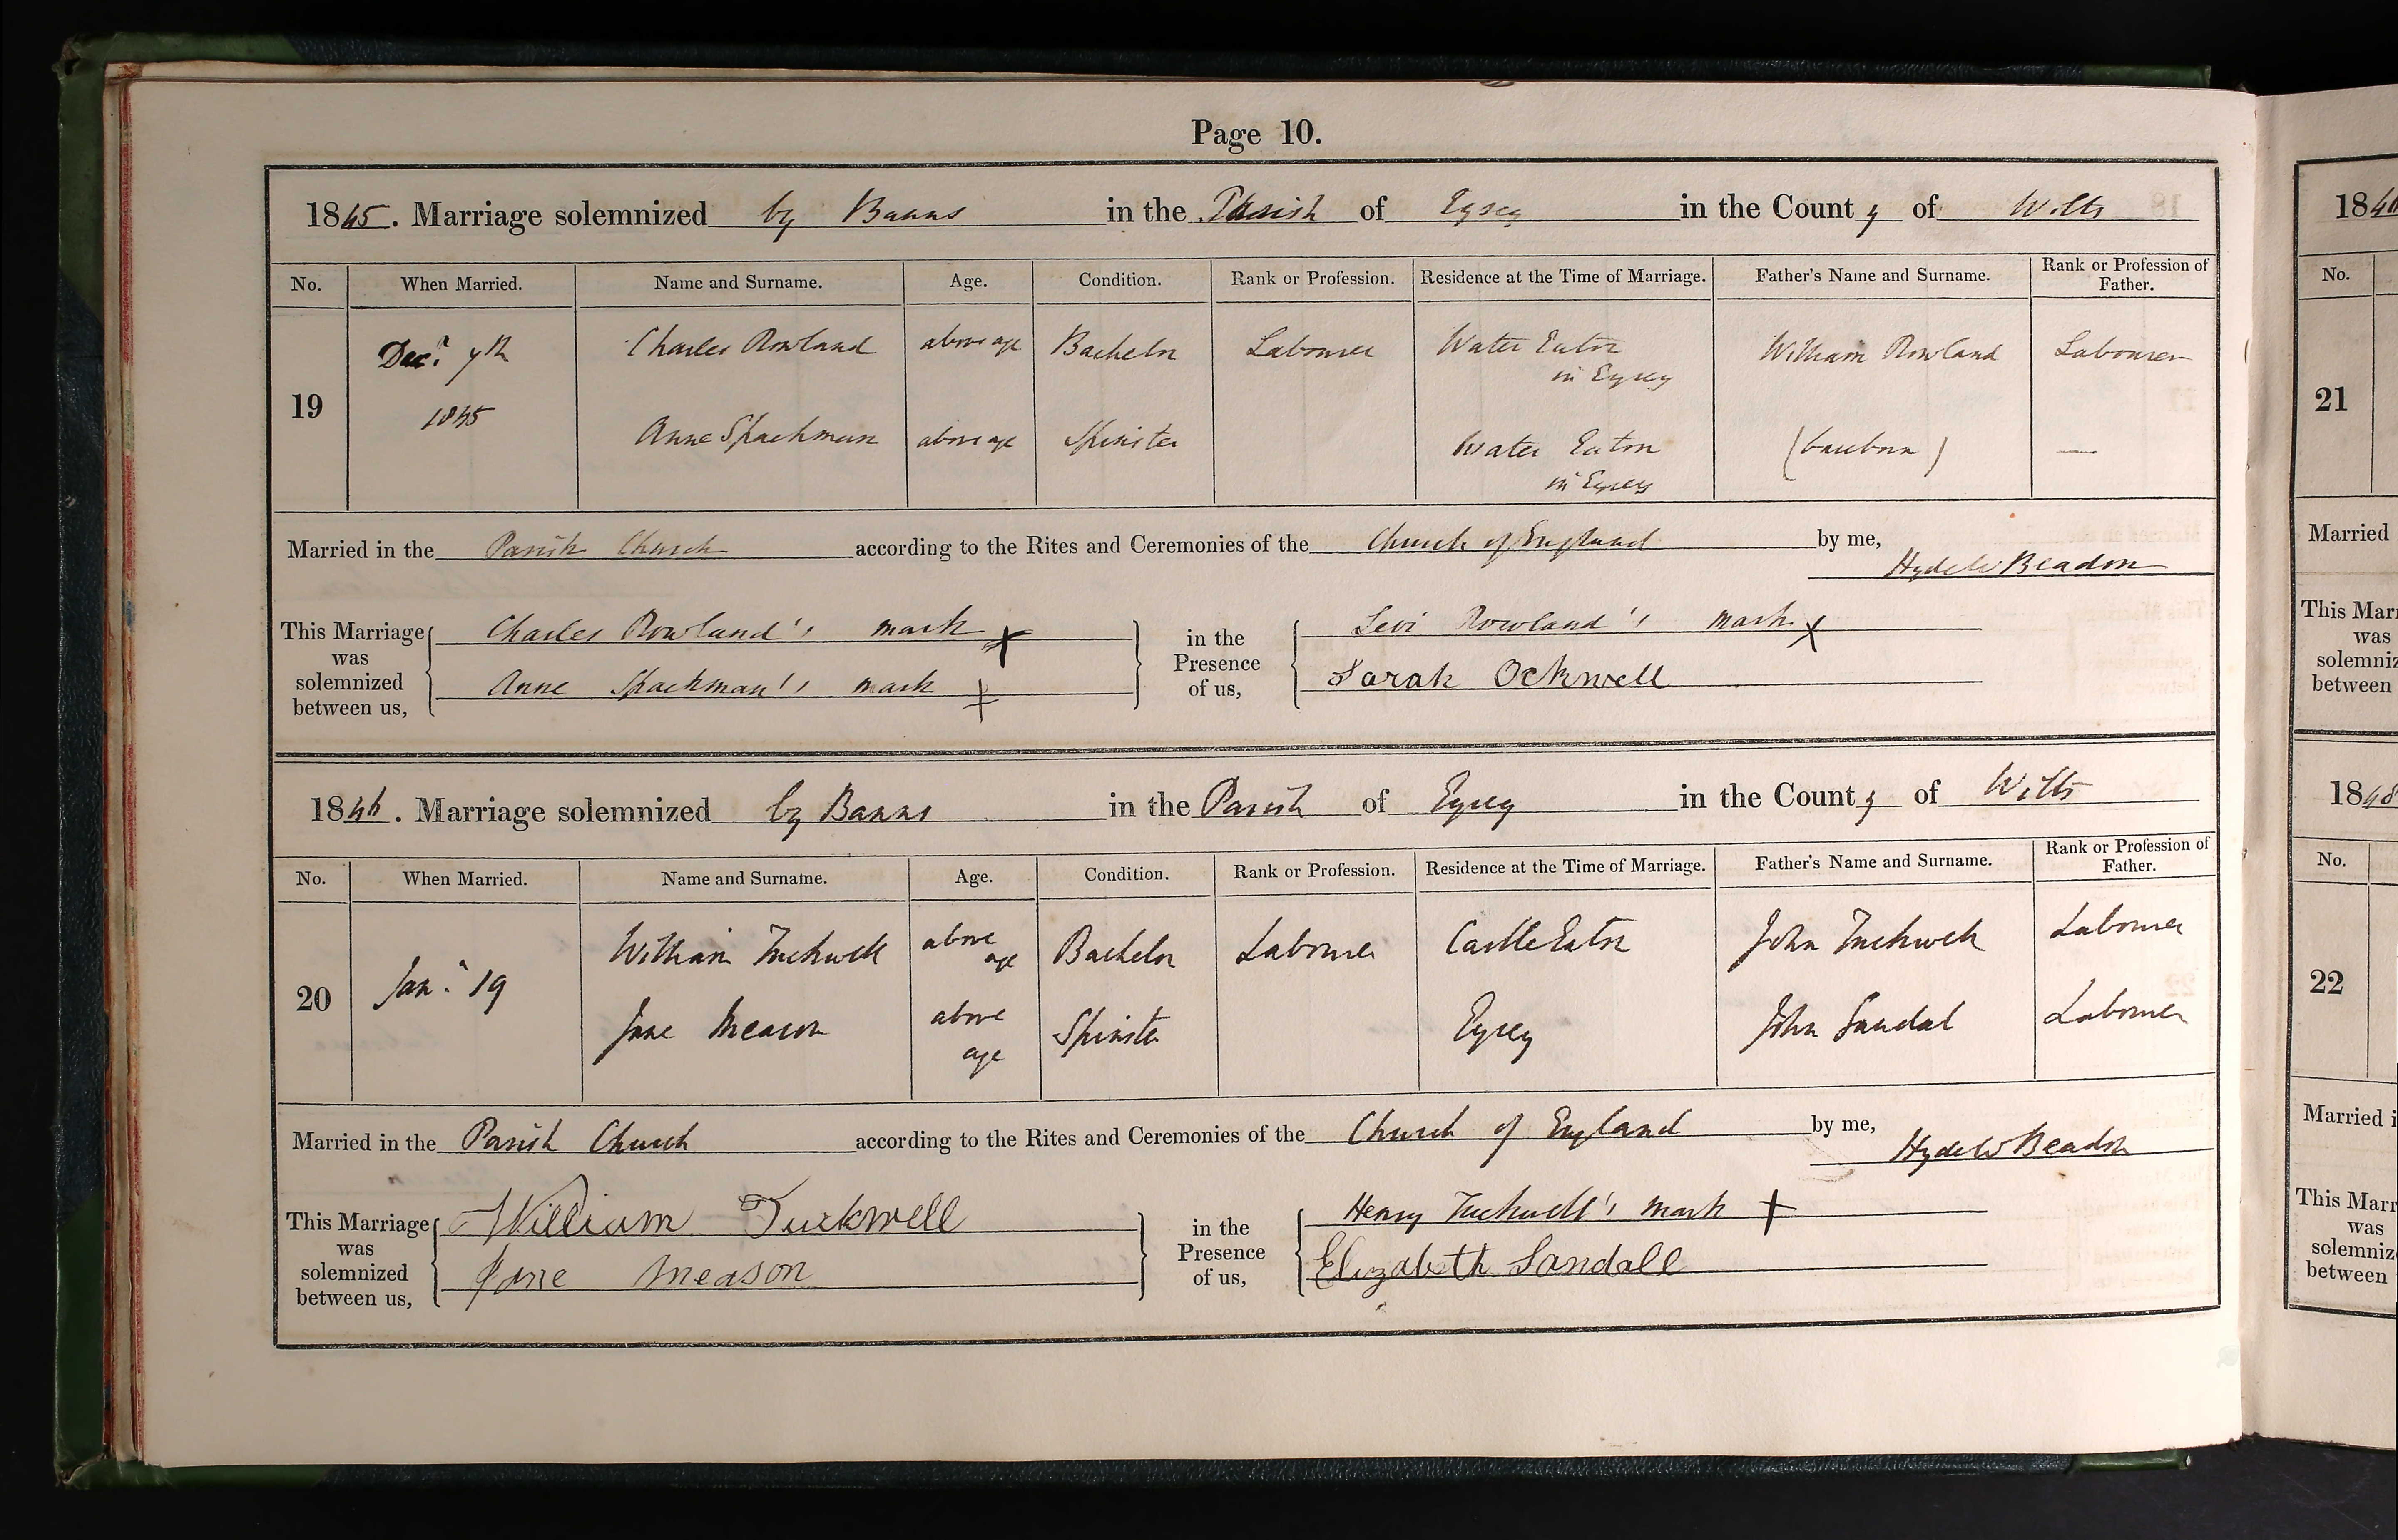 Page 10.
1845. Marriage solemnized by Banns in the Parish of Eysey in the County of Wilts
No. When Married. Name and Surname. Age. Condition. Rank or Profession. Residence at the Time of Marriage. Father's Name and Surname. Rank or Profession of Father.
19 Decr. 7th 1845 Charles Rowland above age Bachelor Labourer Water Eaton in Eysey William Rowland Labourer
Anne Spackman above age Spinster Water Eaton in Eysey (baseborn) —
Married in the Parish Church according to the Rites and Ceremonies of the Church of England by me, Hyde W Beadon
This Marriage was solemnized between us, Charles Rowland's mark X
Anne Spackman's mark +
in the Presence of us, Levi Rowland's mark X
Sarah Ockwell
1846. Marriage solemnized by Banns in the Parish of Eysey in the County of Wilts
No. When Married. Name and Surname. Age. Condition. Rank or Profession. Residence at the Time of Marriage. Father's Name and Surname. Rank or Profession of Father.
20 Jany. 19 William Tuckwell above age Bachelor Labourer Castle Eaton John Tuckwell Labourer
Jane Meason above age Spinster Eysey John Sandal Labourer
Married in the Parish Church according to the Rites and Ceremonies of the Church of England by me, Hyde W Beadon
This Marriage was solemnized between us, William Tuckwell
Jane Meason
in the Presence of us, Henry Tuckwell's mark +
Elizabeth Sandall
No.
21
Married
This Marr
was
solemniz
between
1848
No.
22
Married i
This Marr
was
solemniz
between